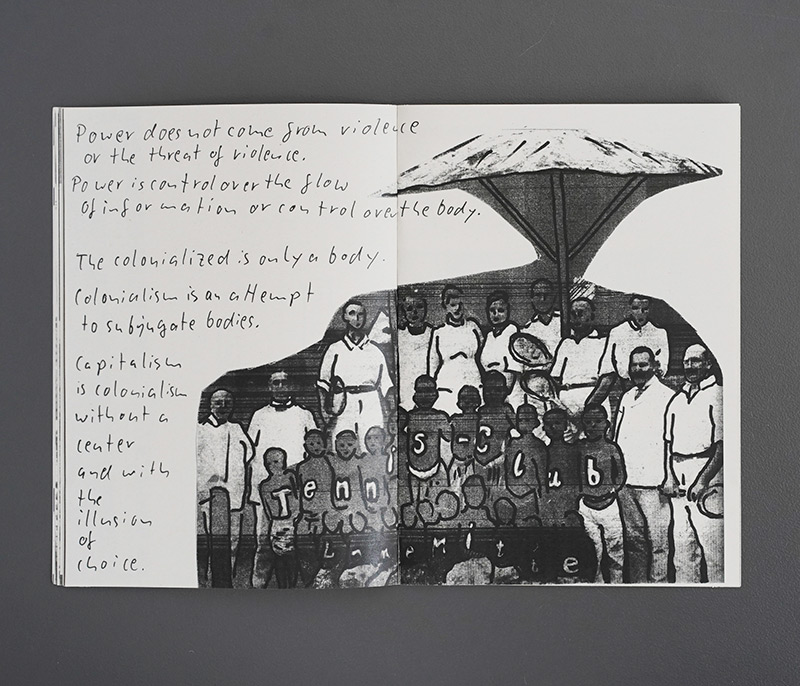 Power does not come from violence
or the threat of violence.
Power is control over the flow
of information or control over the body.
The colonialized is only a body.
Colonialism is an attempt
to subjugate bodies.
Capitalism
is colonialism
without a
center
and with
the
illusion
of
choice.
Tennis-Club